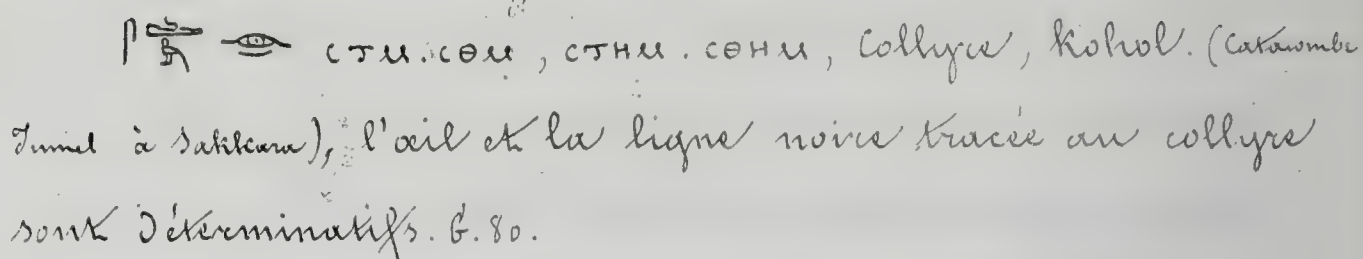 ⲥⲧⲙ.ⲥⲑⲙ, ⲥⲧⲏⲙ.ⲥⲑⲏⲙ, Collyre, Kohol. (Catacombe
Tunnel à Sakkara), l'œil et la ligne noire tracée au collyre
sont Déterminatifs. G. 80.